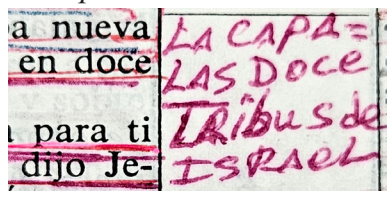 a nueva
en doce
para ti
dijo Je-
LA CAPA=
LAS DOCE
TRIBUS de
ISRAEL